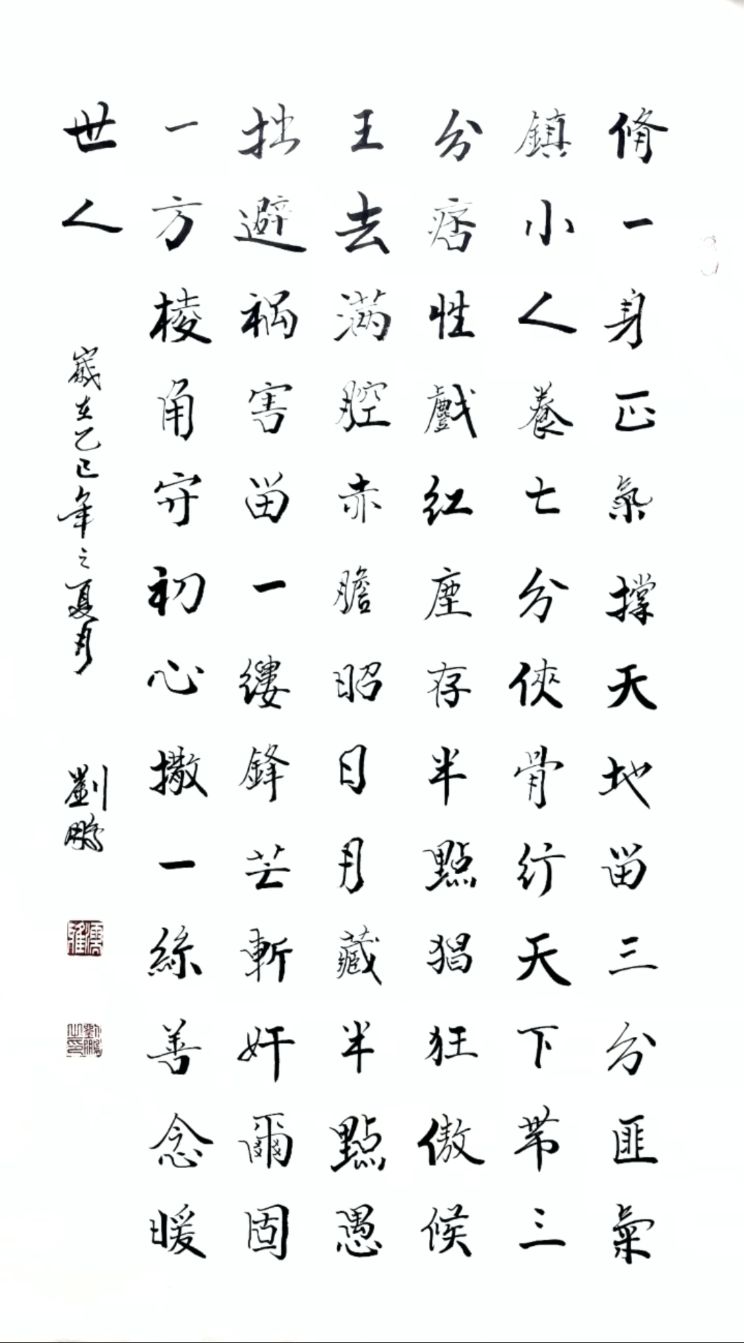 脩一身正氣撐天地留三分匪氣
鎮小人養七分俠骨行天下帶三
分痞性戲紅塵存半點猖狂傲侯
王去滿腔赤膽昭日月藏半點愚
拙避禍害留一縷鋒芒斬奸爾固
一方棱角守初心撒一絲善念暖
世人
歲在乙巳年之夏月
劉鵬
劉鵬之印